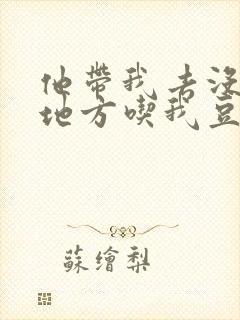 他带我去没
地方喫我豆
蘇繪梨